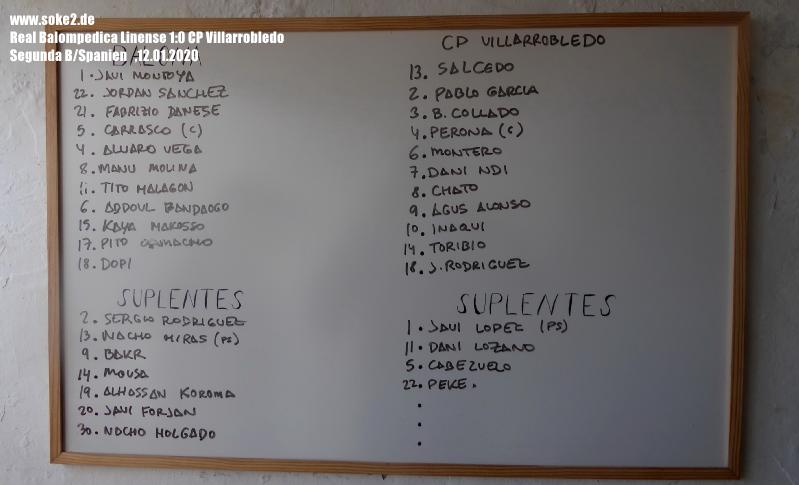 www.soke2.de
Real Balompedica Linense 1:0 CP Villarrobledo
Segunda B/Spanien 12.01.2020
BALONA
1. JAVI MONTOYA
22. JORDAN SANCHEZ
21. FABRIZIO DANESE
5. CARRASCO (C)
4. ALVARO VEGA
8. MANU MOLINA
11. TITO MALAGON
6. ABDOUL BANDAOGO
15. KAYA MAKOSSO
17. PITO
18. DOPI
SUPLENTES
2. SERGIO RODRIGUEZ
13. NACHO MIRAS (PS)
9. BAKR
14. MOUSA
19. ALHASSAN KOROMA
20. JAVI FORJAN
30. NACHO HOLGADO
CP VILLARROBLEDO
13. SALCEDO
2. PABLO GARCIA
3. B. COLLADO
4. PERONA (C)
6. MONTERO
7. DANI NDI
8. CHATO
9. AGUS ALONSO
10. INAQUI
14. TORIBIO
18. J. RODRIGUEZ
SUPLENTES
1. JAVI LOPEZ (PS)
11. DANI LOZANO
5. CABEZUELO
22. PEKE.